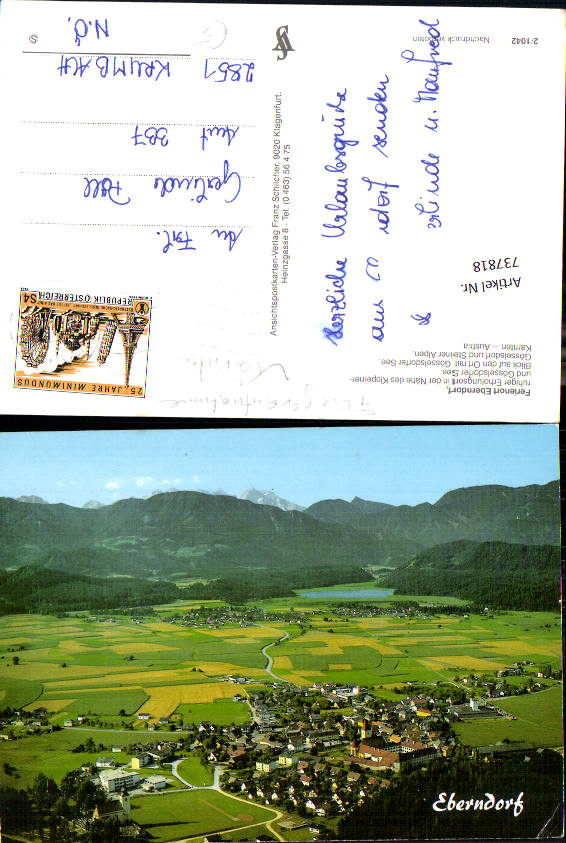 Ferienort Eberndorf,
ruhiger Erholungsort in der Nähe des Klopeiner-
und Gösselsdorfer See.
Blick auf den Ort mit Gösselsdorfer See.
Gösselsdorf und Steiner Alpen.
Kärnten – Austria
Artikel Nr.
737818
Herzliche Urlaubsgrüße
aus
senden
u. Manfred
2/1042
Nachdruck verboten
Ansichtspostkarten-Verlag Franz Schilcher, 9020 Klagenfurt.
Heinzgasse 8 · Tel. (0 463) 56 4 75
25 JAHRE MINIMUNDUS
REPUBLIK ÖSTERREICH S4
An Fam.
Gerlinde
387
2851 KRUMBACH
N.Ö.
Eberndorf